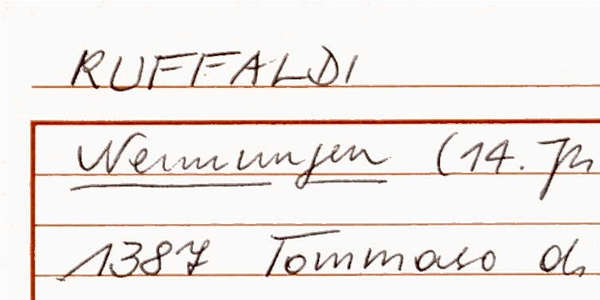 RUFFALDI
Nennungen (14. Jh
1387 Tommaso di